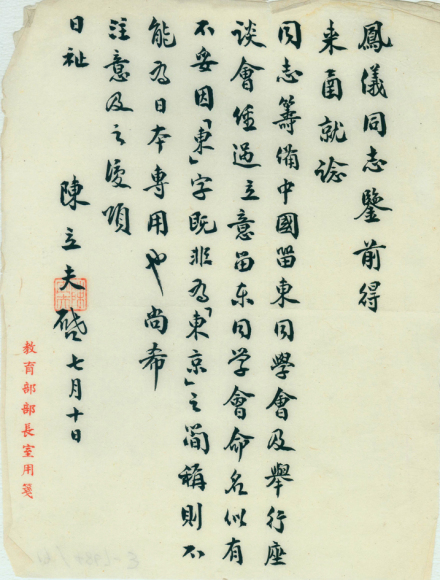 鳳儀同志鑒前得
来函就諗
同志籌備中國留東同學會及舉行座
談會經過立意留东同学會命名似有
不妥因「東」字既非為「東京」之简稱則不
能為日本專用也尚希
注意及之復頌
日祉
陳立夫啓七月十日
教育部部長室用箋